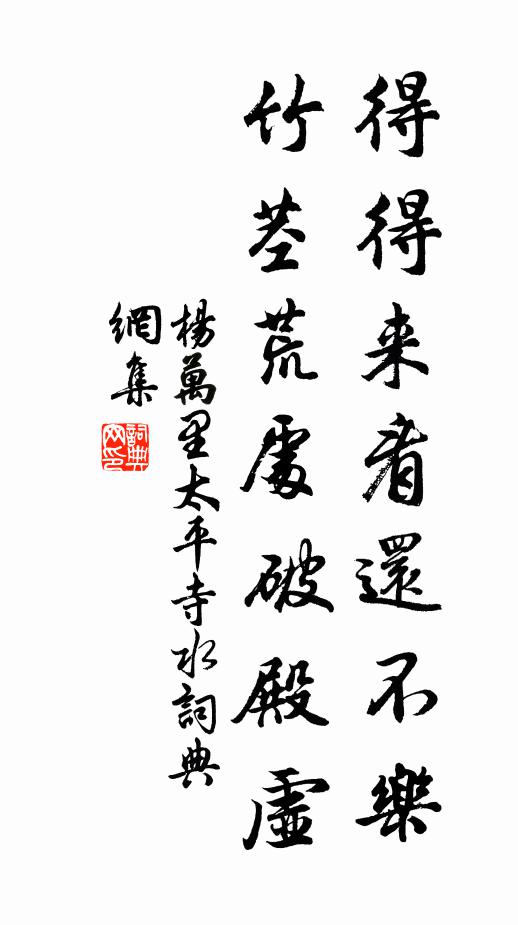 得得来看還不樂
竹莖荒處破殿虛
楊萬里太平寺水詞典
網集
詞典
网印